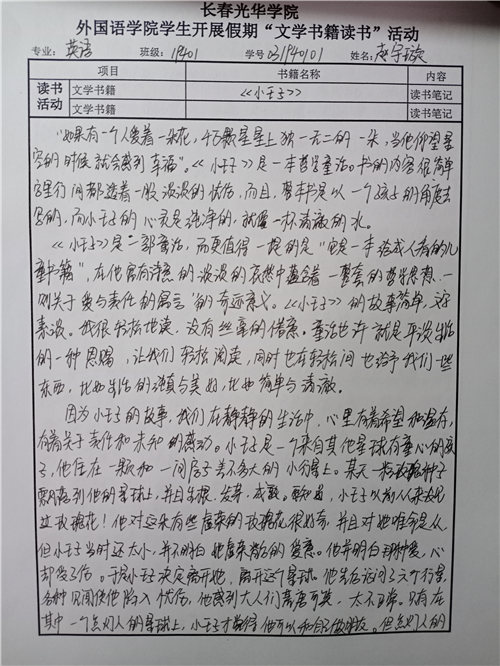 长春光华学院
外国语学院学生开展假期“文学书籍读书”活动
专业：英语 班级：19401 学号 031940101 姓名：赵宇璇
读书活动 项目 书籍名称 内容
文学书籍 《小王子》 读书笔记
文学书籍 读书笔记
“如果有一个人爱着一朵花，千万颗星星上独一无二的一朵，当他仰望星
空的时候就会感到幸福”。《小王子》是一本哲学童话。书的内容很简单
字里行间都透着一股淡淡的忧伤，而且，整本书是以一个孩子的角度去
写的，而小王子的心灵是纯净的，就像一杯清澈的水。
《小王子》是一部童话，而更值得一提的是“它是一本给成人看的儿
童书籍”，在他富有诗意的淡淡的哀愁中蕴含着一整套的哲学思想，一
则关于爱与责任的寓言的奇迹意义。《小王子》的故事简单，文字
素淡。我很轻松地读，没有丝毫的倦意。童话也许就是平淡生活
的一种恩赐，让我们轻松阅读，同时也在轻松间也给予我们一些
东西，比如生活的纯真与美好，比如简单与清澈。
因为小王子的故事，我们在静静的生活中，心里有着希望和温存，
有着关于责任和未知的感动。小王子是一个来自其他星球有童心的孩
子，他住在一颗和一间房子差不多大的小行星上。某天一粒玫瑰种子
飘落到他的星球上，并且生根、发芽、成熟。
玫瑰花！他对这朵有些虚荣的玫瑰花很好奇，并且对她唯命是从，
但小王子当时还太小，并不明白她虚荣背后的爱意。他并明白那种爱，心
却受了伤。于是小王子决定离开她，离开这个星球。他先后访问了六个行星，
各种见闻使他陷入忧伤，他感到大人们荒唐可笑，太不正常。只有在
其中一个点灯人的星球上，小王子才觉得他可以和自己做朋友。但点灯人的